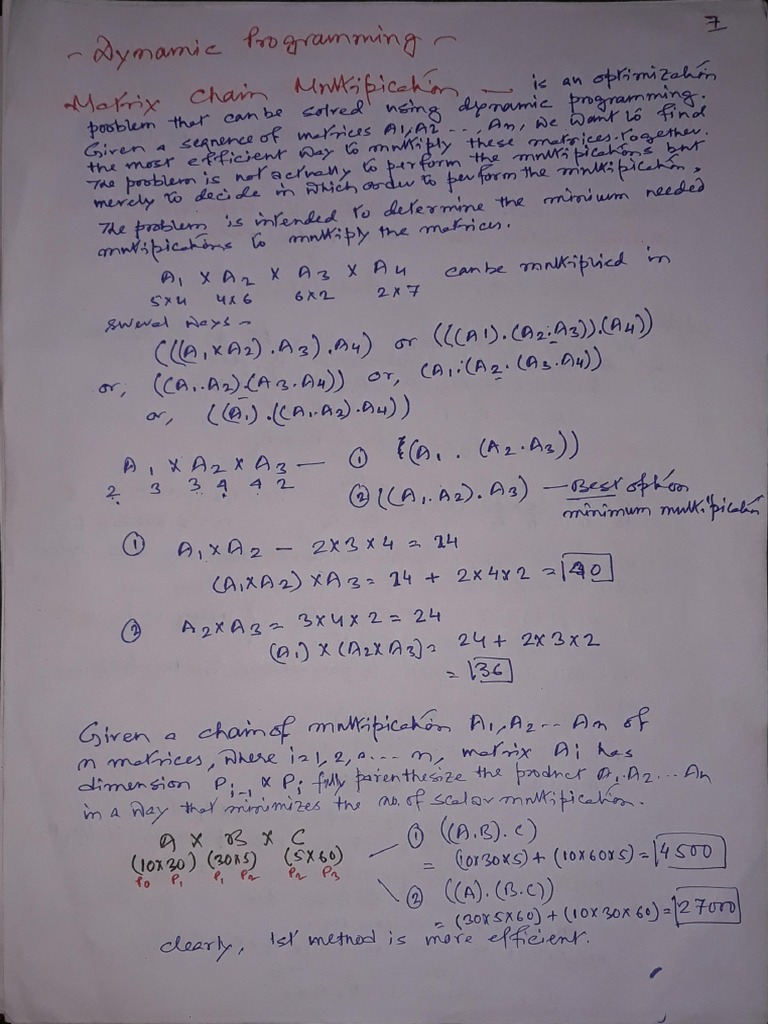 7
~ Dynamic Programming ~
Matrix Chain Multipication — is an optimization
problem that can be solved using dynamic programming.
Given a sequence of matrices A1, A2 ..., An, we want to find
the most efficient way to multiply these matrices together.
The problem is not actually to perform the multipications but
merely to decide in which order to perform the multipication.
The problem is intended to determine the minium needed
multipications to multiply the matrices.
A1 X A2 X A3 X A4 can be multiplied in
5x4 4x6 6x2 2x7
several ways -
(((A1 X A2) . A3) . A4) or (((A1) . (A2 . A3)) . (A4))
or, ((A1 . A2) . (A3 . A4)) or, (A1 . (A2 . (A3 . A4))
or, ((A1) . ((A1 . A2) . A4))
A1 X A2 X A3 — ① ((A1 . (A2 . A3))
2 3 3 4 4 2
② ((A1 . A2) . A3) — Best option
minimum multipication
① A1 X A2 - 2x3x4 = 24
(A1 X A2) X A3 = 24 + 2x4x2 = 40
② A2 X A3 = 3x4x2 = 24
(A1) X (A2 X A3) = 24 + 2x3x2
= 36
Given a chain of multipication A1, A2 -- An of
n matrices, where i=1, 2, ... n, matrix Ai has
dimension Pi-1 x Pi fully parenthesize the product A1.A2...An
in a way that minimizes the no. of scalar multipication.
A X B X C ① ((A.B).C)
(10x30) (30x5) (5x60) = (10x30x5) + (10x60x5) = 4500
P0 P1 P1 P2 P2 P3
② ((A).(B.C))
= (30x5x60) + (10x30x60) = 27000
clearly, 1st method is more efficient.